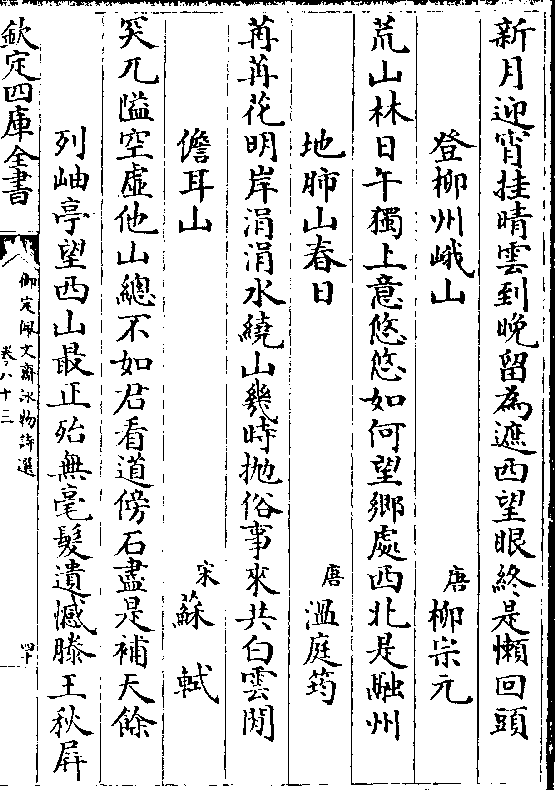 新月迎宵挂晴雲到晚留為遮西望眼終是懶回頭
登柳州峨山　唐　柳宗元
荒山林日午獨上意悠悠如何望鄉處西北是融州
地肺山春日　唐　溫庭筠
苒苒花明岸涓涓水繞山幾時抛俗事來共白雲閒
儋耳山　宋　蘇　軾
突兀隘空虛他山總不如君看道傍石盡是補天餘
列岫亭望西山最正殆無毫髮遺憾滕王秋屏
欽定四庫全書
御定佩文齋詠物詩選
卷八十三
四十